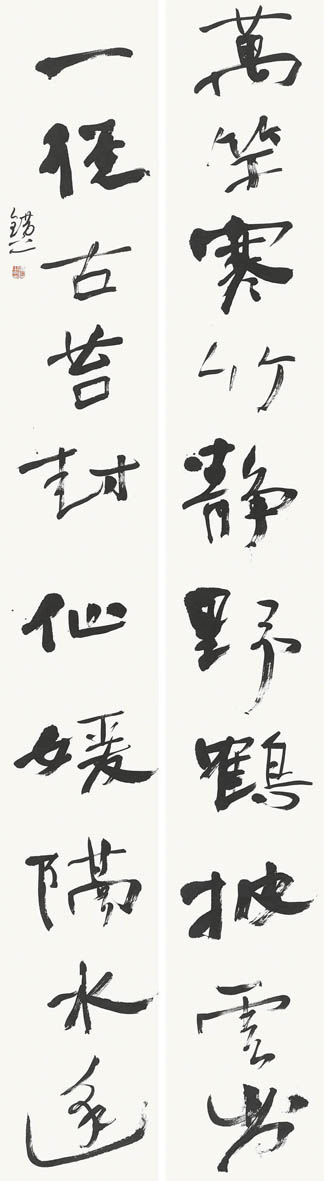 萬竿寒竹静野鶴披雲出
一徑古苔封仙媛隔水逢